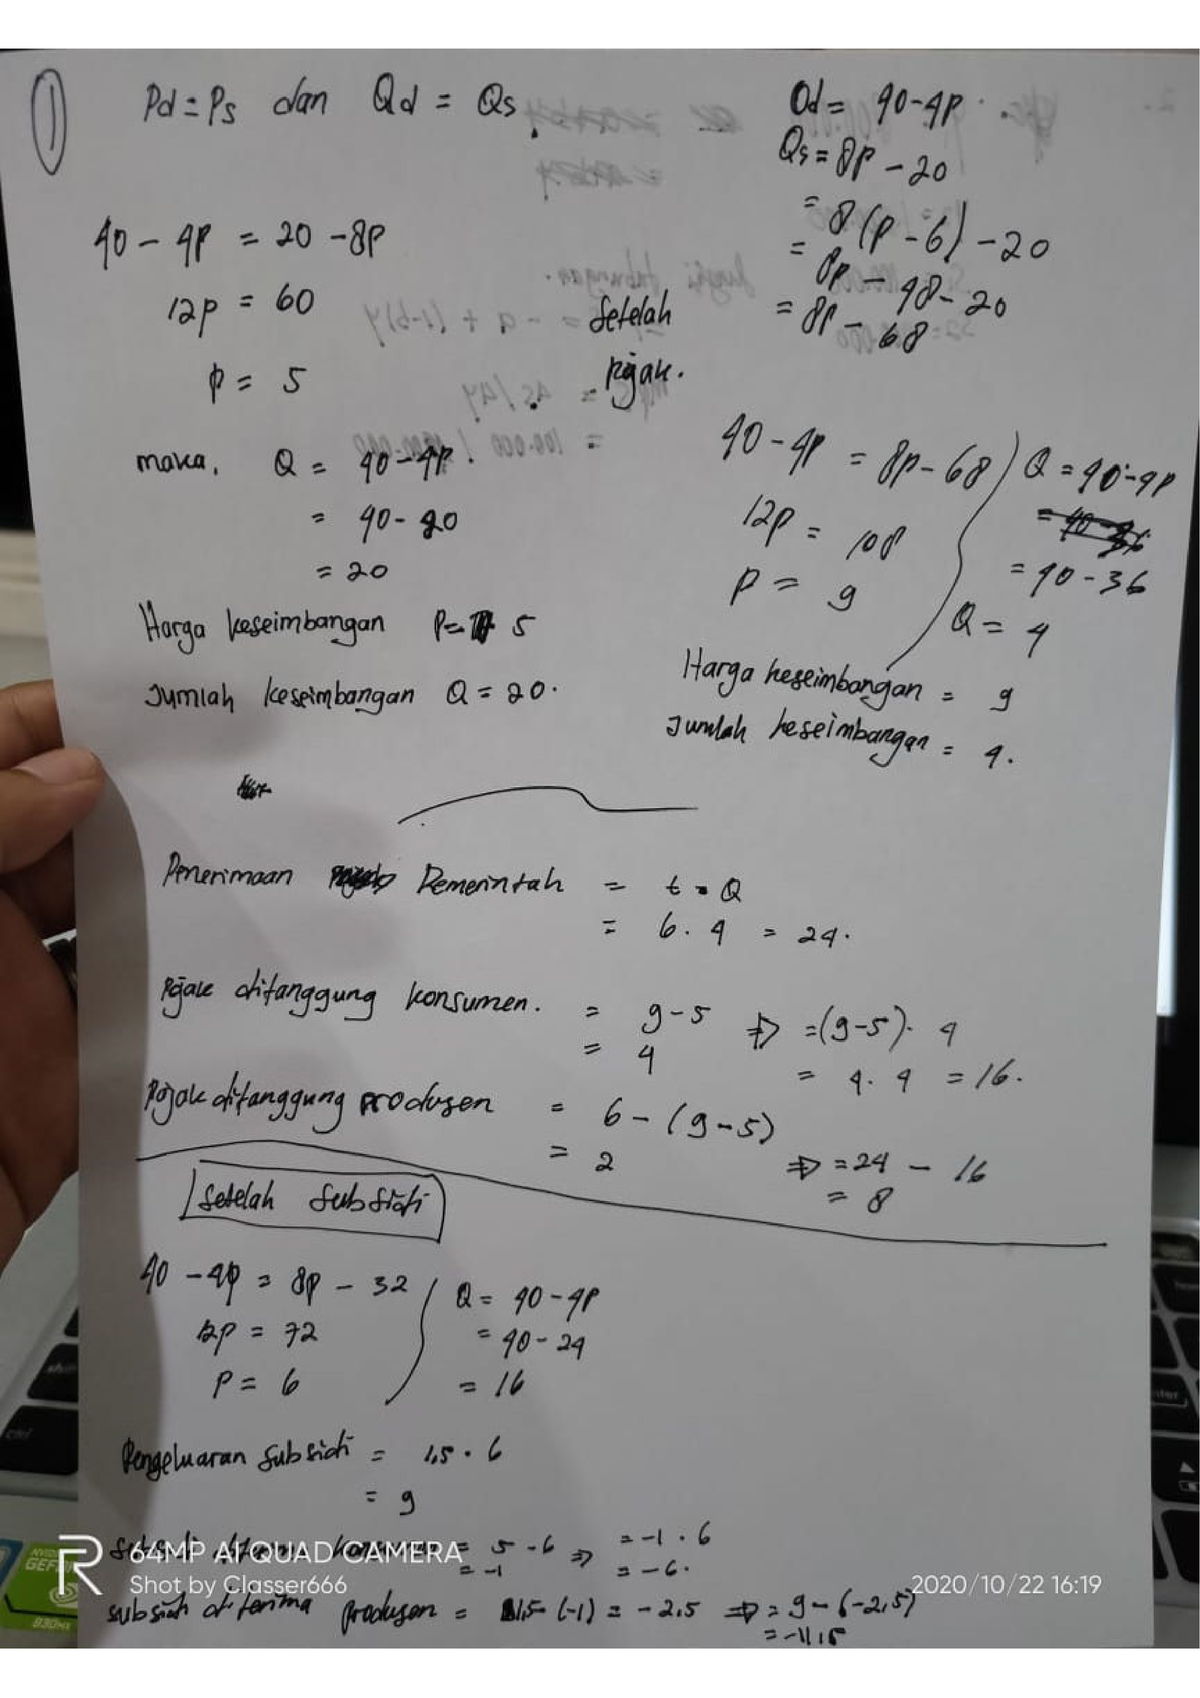 1
Pd = Ps dan Qd = Qs
40 - 4P = 20 - 8P
12P = 60
P = 5
maka, Q = 40 - 4P.
= 40 - 20
= 20
Harga keseimbangan P = 5
Jumlah keseimbangan Q = 20.
Qd = 40 - 4P
Qs = 8P - 20
= 8(P - 6) - 20
= 8P - 48 - 20
= 8P - 68
Setelah
Pajak.
40 - 4P = 8P - 68
12P = 108
P = 9
Q = 40 - 4P
= 40 - 36
Q = 4
Harga keseimbangan = 9
Jumlah keseimbangan = 4.
Penerimaan Pemerintah = t . Q
= 6 . 4 = 24.
Pajak ditanggung konsumen. = 9 - 5 ⇒ = (9 - 5) . 4
= 4 = 4 . 4 = 16.
Pajak ditanggung produsen = 6 - (9 - 5)
= 2 ⇒ = 24 - 16
= 8
Setelah Subsidi
40 - 4P = 8P - 32
12P = 72
P = 6
Q = 40 - 4P
= 40 - 24
= 16
Pengeluaran Subsidi = 1,5 . 6
= 9
= 5 - 6 ⇒ = -1 . 6
= -1 = -6.
subsidi diterima produsen = 1,5 - (-1) = -2,5 ⇒ = 9 - (-2,5)
= -11,5
64MP AI QUAD CAMERA
Shot by Classer666
2020/10/22 16:19